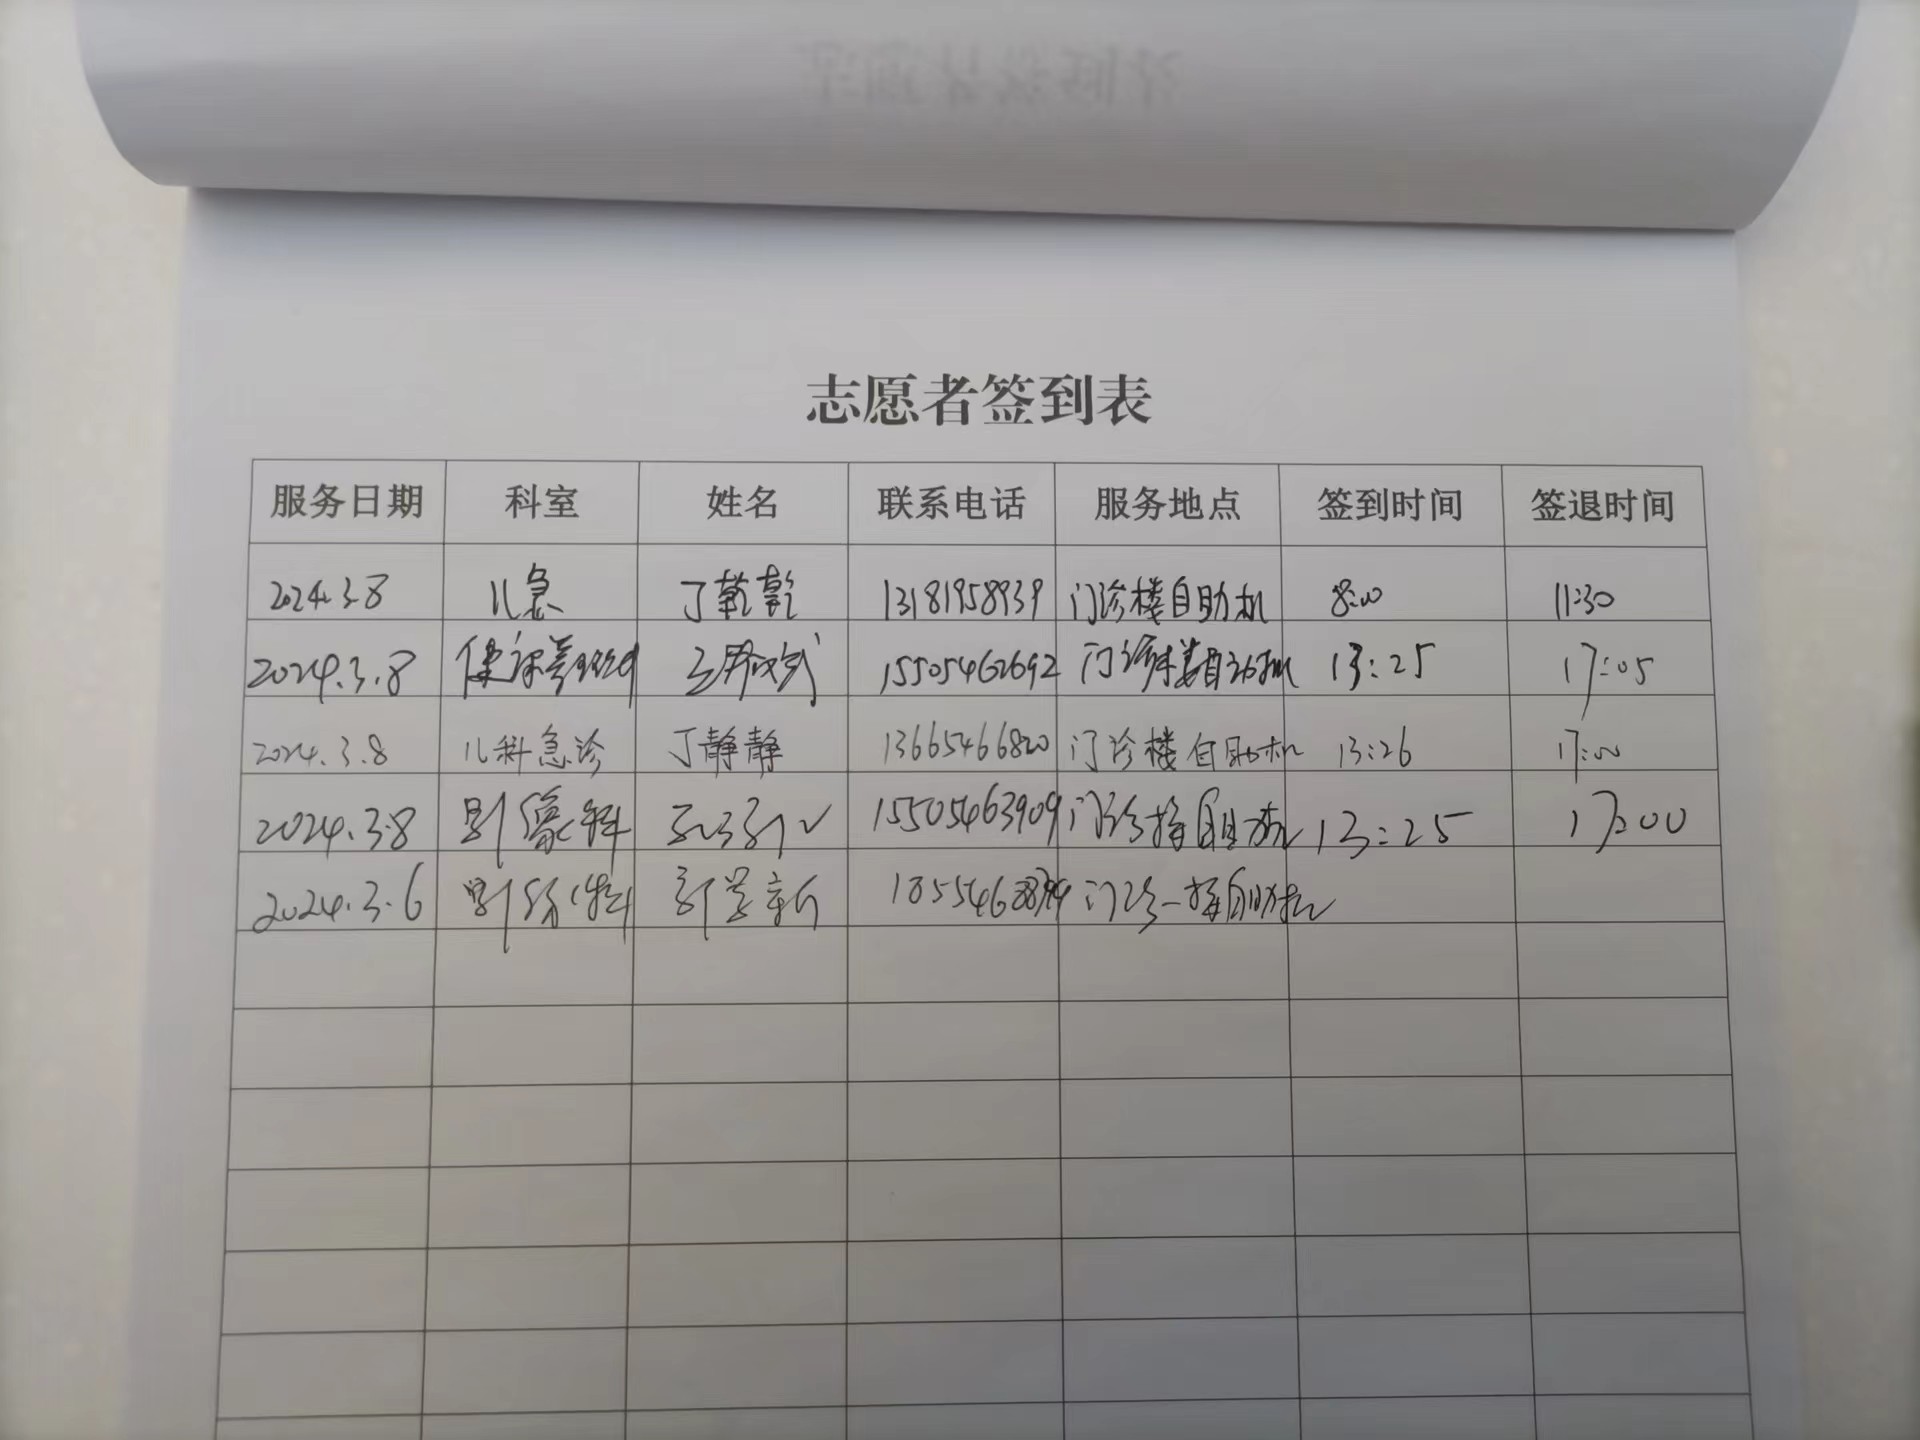 志愿者签到表
服务日期 科室 姓名 联系电话 服务地点 签到时间 签退时间
2024.3.8 儿急 丁乾乾 13181958939 门诊楼自助机 8:00 11:30
2024.3.8 健康管理 15505462692 门诊楼自助机 13:25 17:05
2024.3.8 儿科急诊 丁静静 13665466820 门诊楼自助机 13:26 17:00
2024.3.8 影像科 15505463909 门诊楼自助机 13:25 17:00
2024.3.6 影像科 门诊一楼自助机